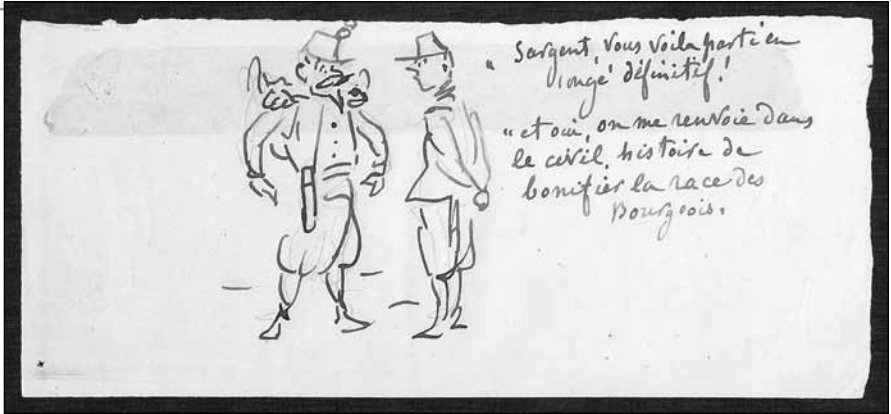 " Sargent, vous voila parti en
congé définitif!
" et oui, on me renvoie dans
le civil, histoire de
bonifier la race des
Bourgeois.